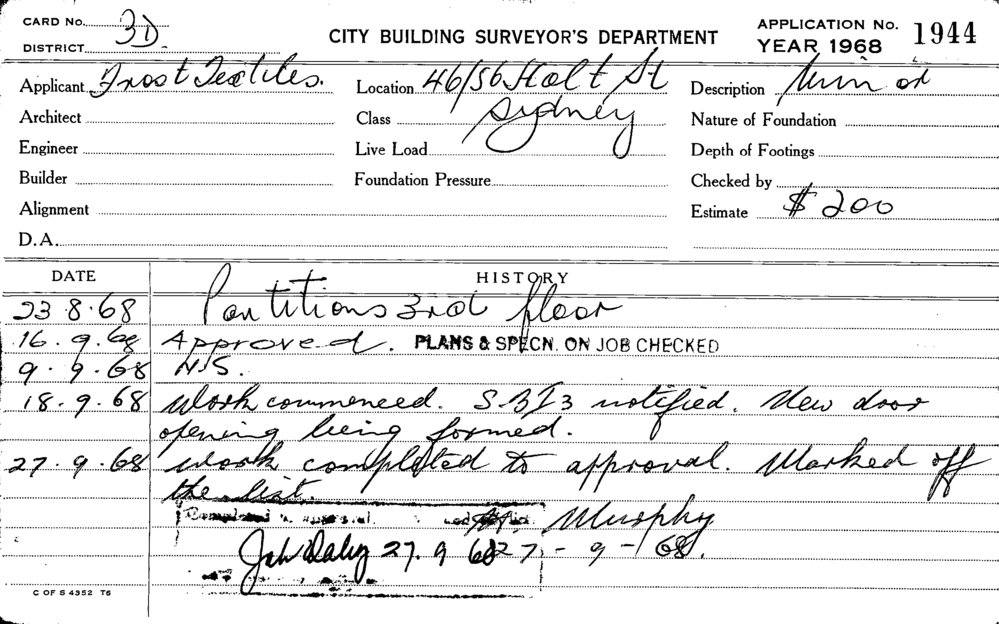 CARD No. 3D.
DISTRICT
CITY BUILDING SURVEYOR'S DEPARTMENT
APPLICATION No. 1944
YEAR 1968
Applicant Frost Textiles.
Location 46/56 Holt St
Sydney
Description Minor
Architect
Class
Nature of Foundation
Engineer
Live Load
Depth of Footings
Builder
Foundation Pressure
Checked by
Alignment
Estimate $200
D.A.
DATE HISTORY
23.8.68 Partitions 3rd floor
16.9.68 Approved. PLANS & SPECN. ON JOB CHECKED
9.9.68 N/S.
18.9.68 Work commenced. S.B.I3 notified. New door
opening being formed.
27.9.68 Work completed to approval. Marked off
the list.
Murphy
27.9.68 27-9-68.
C OF S 4352 T6